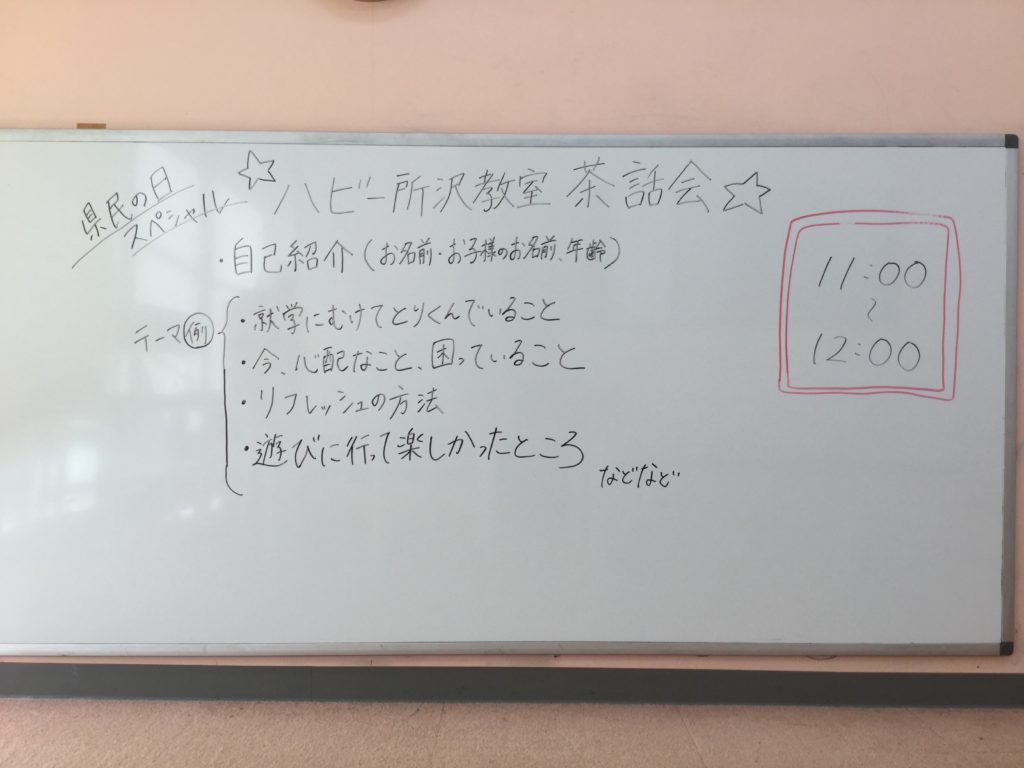 県民の日
スペシャル
☆ハビー所沢教室 茶話会☆
・自己紹介(お名前・お子様のお名前、年齢)
テーマ例
・就学にむけてとりくんでいること
・今、心配なこと、困っていること
・リフレッシュの方法
・遊びに行って楽しかったところ
などなど
11:00
~
12:00